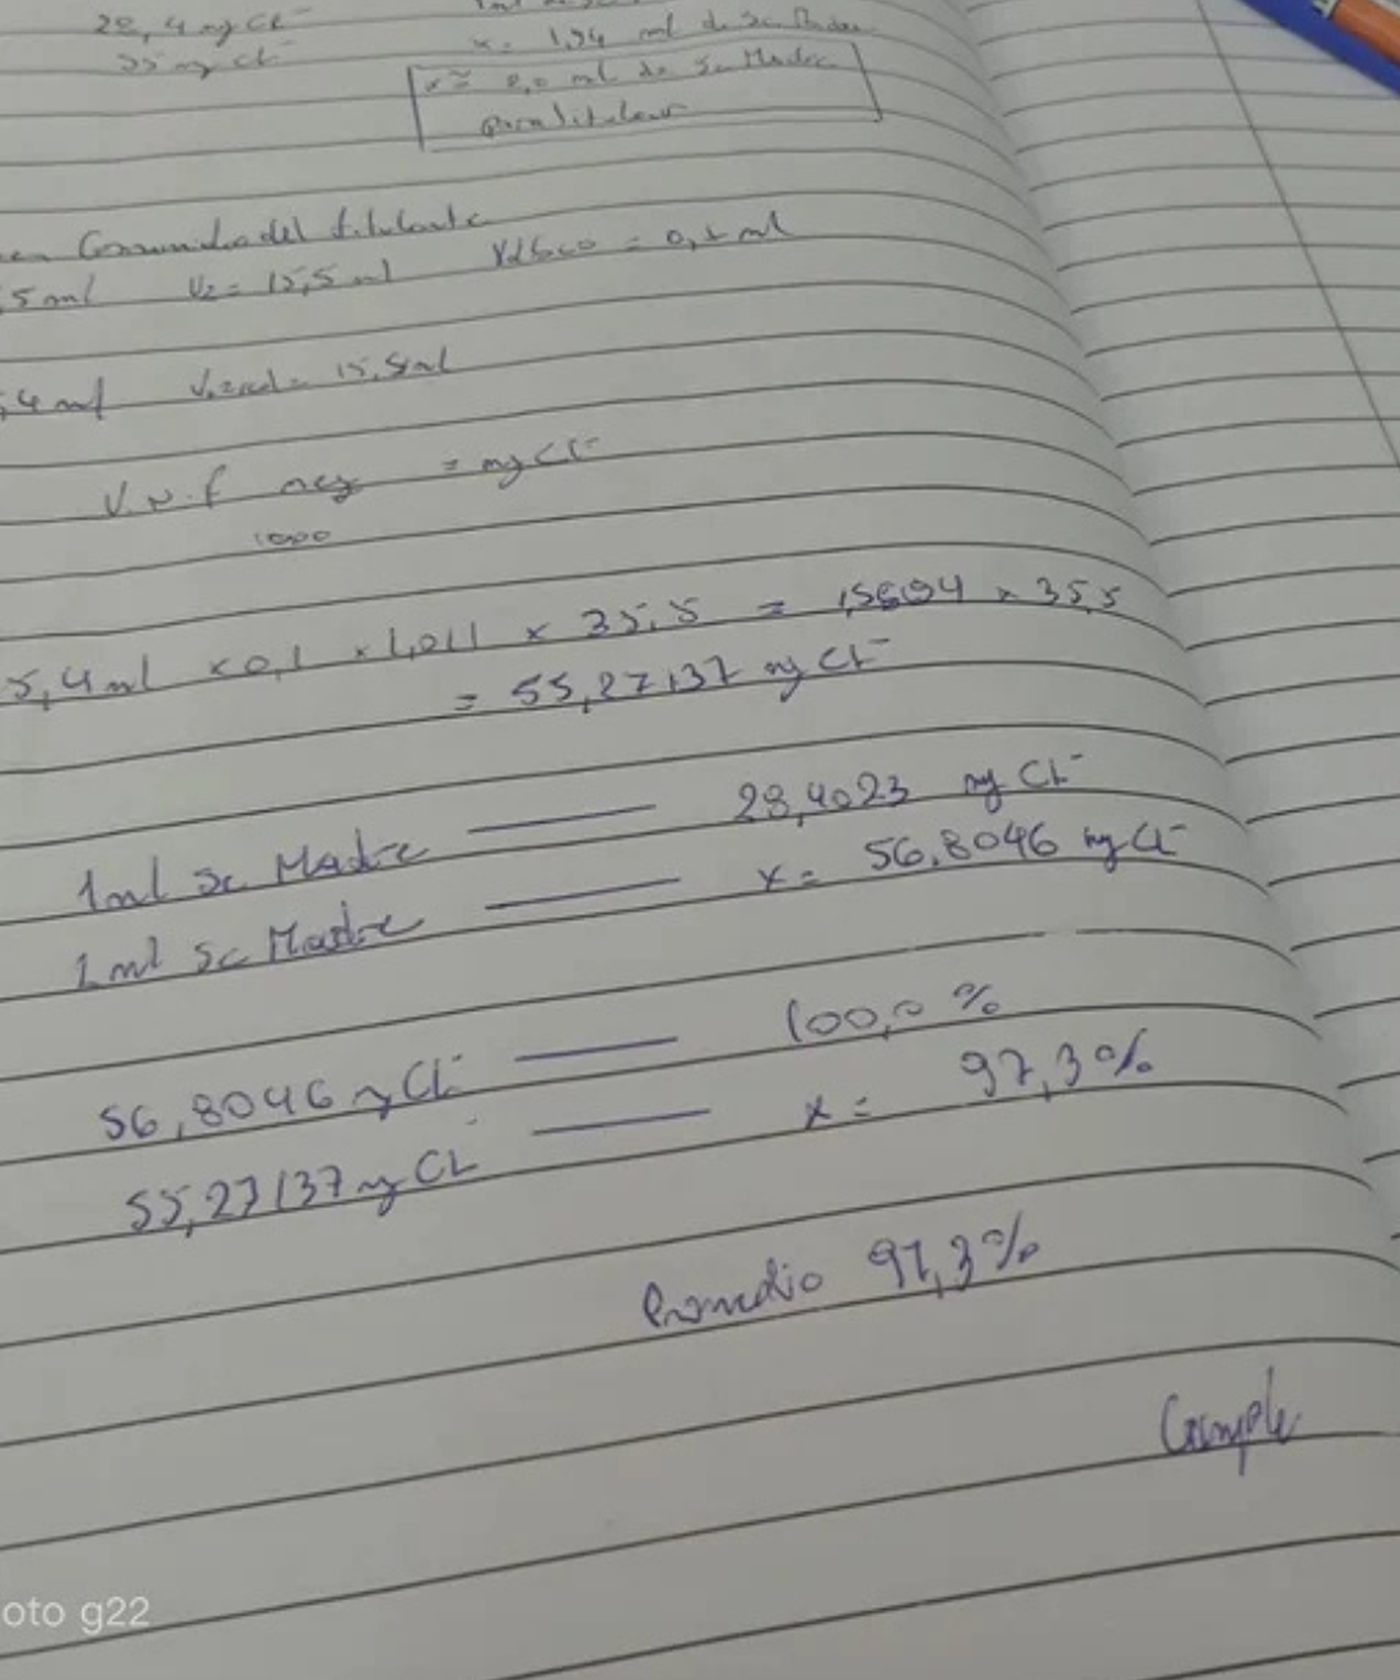 28,4 mg Cl⁻
55 mg Cl⁻
x = 1,94 ml de Sc. Madre
x ≅ 2,0 ml de Sc Madre
para titular
Consumido del titulante
5 ml V₂ = 15,5 ml Vblanco = 0,1 ml
,4 ml = 15,4 ml
V.N.f meq = mg Cl⁻
1000
5,4 ml × 0,1 × 1,011 × 35,5 = 1,5694 × 35,5
= 55,27137 mg Cl⁻
1 ml Sc Madre — 28,4023 mg Cl⁻
2 ml Sc Madre — x = 56,8046 mg Cl⁻
56,8046 mg Cl⁻ — 100,0 %
55,27137 mg Cl⁻ — x = 97,3 %
Promedio 97,3 %
Cumple
oto g22